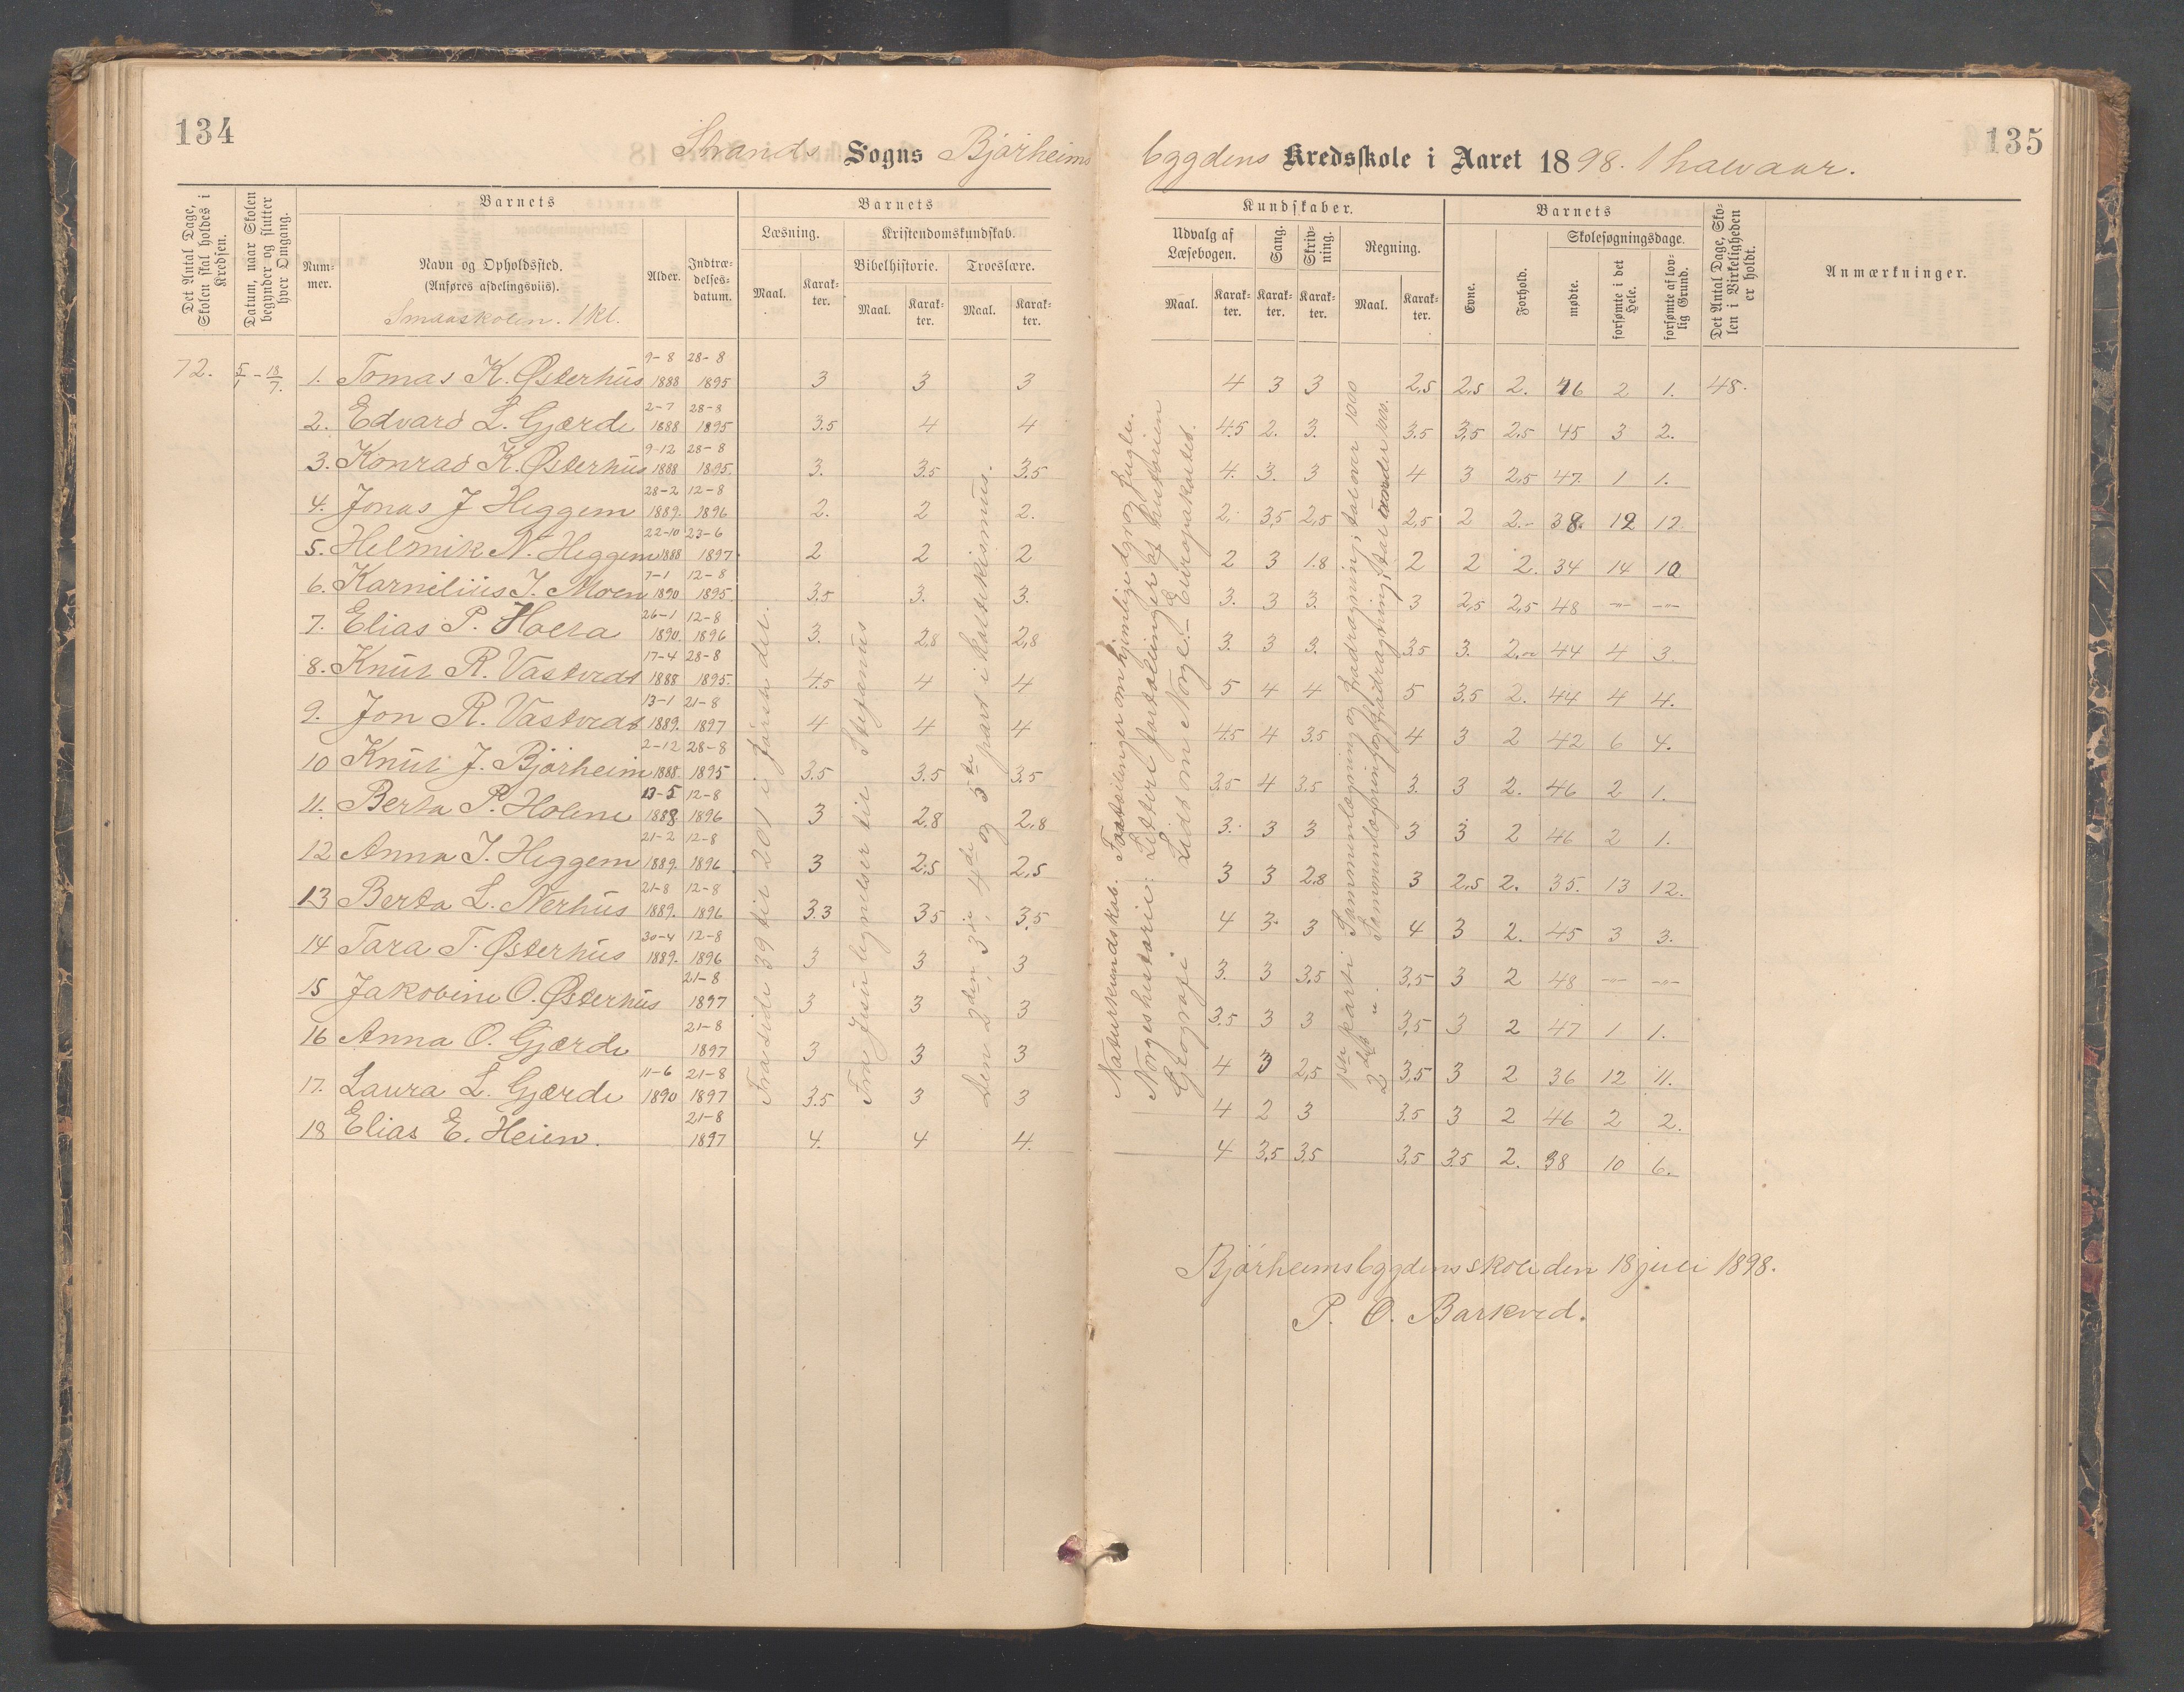 134
135
Strands Sogns Bjørheims
bygdens Kredsskole i Aaret 1898. 1 halvaar.
Det Antal Dage, Skolen skal holdes i Kredsen.
Datum, naar Skolen begynder og slutter hver Omgang.
Barnets
Nummer.
Navn og Opholdssted.
(Anføres afdelingsviis).
Smaaskolen. 1 Kl.
Alder.
Indtrædelses-datum.
Barnets
Læsning.
Maal.
Karakter.
Kristendomskundskab.
Bibelhistorie.
Maal.
Karakter.
Troeslære.
Maal.
Karakter.
Kundskaber.
Udvalg af Læsebogen.
Maal.
Karakter.
Sang.
Karakter.
Skrivning.
Karakter.
Regning.
Maal.
Karakter.
Barnets
Evne.
Forhold.
Skolesøgningsdage.
mødte.
forsømte i det Hele.
forsømte af lovlig Grund.
Det Antal Dage, Skolen i Virkeligheden er holdt.
Anmærkninger.
72. 5/1 – 18/7. 1. Tomas K. Østerhus 9-8 1888 28-8 1895 3 3 3 4 3 3 2,5 2,5 2. 46 2 1. 48.
2. Edvard L. Gjærde 2-7 1888 28-8 1895 3.5 4 4 4.5 2. 3. 3.5 3,5 2,5 45 3 2.
3. Konrad K. Østerhus 9-12 1888 28-8 1895. 3. 3.5 3.5 4. 3. 3 4 3 2,5 47 1 1.
4. Jonas J Heggem 28-2 1889. 12-8 1896 2. 2 2. 2. 3,5 2,5 2,5 2 2. 38. 12 12.
5. Helmik N. Heggem 22-10 1888 23-6 1897 2 2 2 2 3 1.8 2 2 2. 34 14 10
6. Karnelius J. Moen 7-1 1890 12-8 1895. 3.5 3. 3. 3. 3 3. 3 2,5 2,5 48 -"- -"-
7. Elias P. Holta 26-1 1890. 12-8 1896 3. 2,8 2,8 3. 3 3. 3.5 3. 2. 44 4 3.
8. Knut R. Vastvedt 17-4 1888 28-8 1895. 4.5 4 4 5 4 4 5 3.5 2. 44 4 4.
9. Jon R. Vastvedt 13-1 1889. 21-8 1897 4 4 4 4.5 4 3.5 4 3 2 42 6 4.
10 Knut J. Bjørheim 2-12 1888. 28-8 1895 3.5 3.5 3.5 3.5 4 3.5 3. 3 2. 46 2 1.
11. Berta P. Holem 13-5 1888 12-8 1896 3 2,8 2,8 3. 3 3 3 3 2 46 2 1.
12 Anna J. Heggem 21-2 1889. 12-8 1896 3 2,5 2,5 3 3 2,8 3 2,5 2. 35. 13 12.
13 Berta L. Nerhus 21-8 1889. 12-8 1896 3.3 3.5 3,5 4 3. 3 4 3 2. 45 3 3.
14 Tara T. Østerhus 30-4 1889. 12-8 1896 3 3 3 3. 3 3,5 3,5 3 2 48 -"- -"-
15 Jakobine O. Østerhus 21-8 1897 3 3 3 3.5 3 3 3,5 3 2 47 1 1.
16 Anna O. Gjærde 21-8 1897 3 3 3 4 3 2,5 3,5 3 2 36 12 11.
17. Laura L. Gjærde 11-6 1890 21-8 1897 3.5 3 3 4 2 3 3.5 3 2 46 2 2.
18 Elias E. Heien. 21-8 1897 4. 4 4. 4 3,5 3,5 3,5 3.5 2. 38 10 6.
Fra side 39 til 201 i første del.
Fra Jesu lignelser til Stefanus
Den 2den, 3die, 4de og 5te part i Katekismus.
Naturkundskab. Fortællinger om hjemlige dyr og fugle.
Norgeshistorie: Lettere fortællinger af historien
Geografi. Lidt om Norge. – Europakartet.
1ste parti Sammenlægning og fradragning i tal over 1000
2det " Sammenlægning og fradragning i tal under 100.
Bjørheimsbygdens skole den 18 juli 1898.
P. O. Barkved.